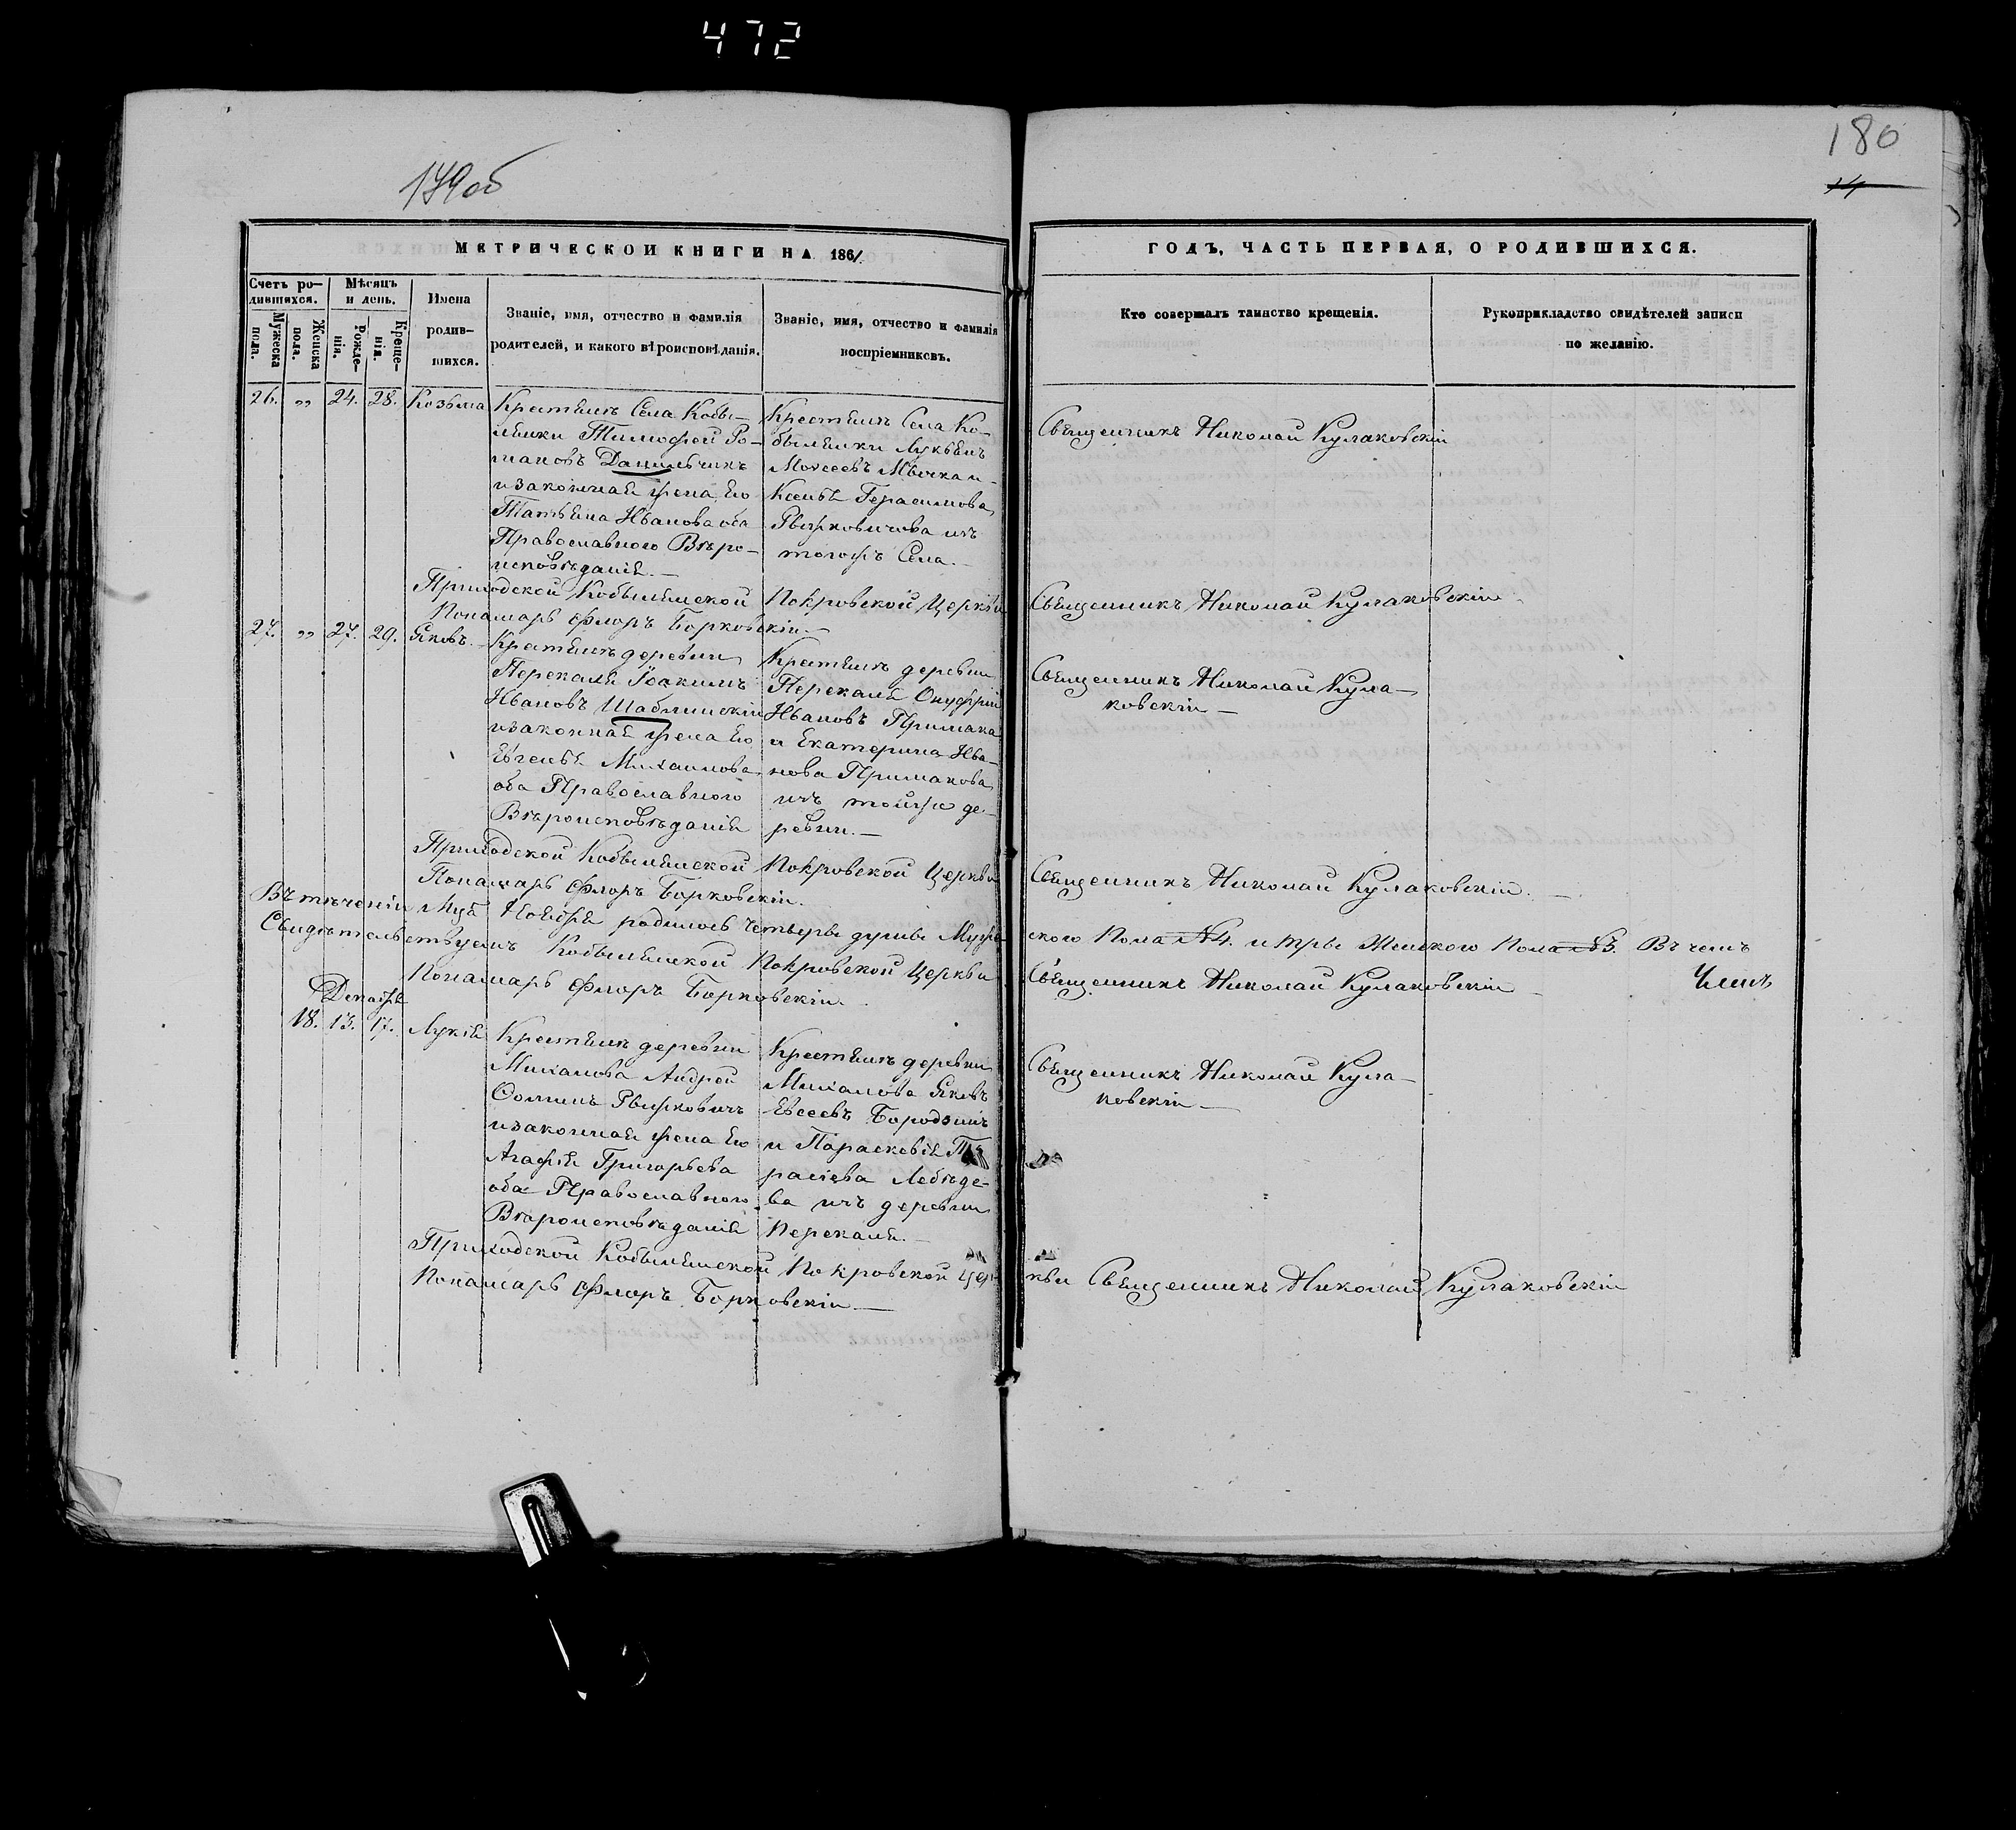 472
179об
180
14
МЕТРИЧЕСКОЙ КНИГИ НА 1861
ГОДЪ, ЧАСТЬ ПЕРВАЯ, О РОДИВШИХСЯ.
Счетъ ро-
дившихся.
Мужеска
пола.
Женска
пола.
Мѣсяцъ
и день.
Рожде-
нія.
Креще-
нія.
Имена
родив-
шихся.
Званіе, имя, отчество и фамилія
родителей, и какого вѣроисповѣданія.
Званіе, имя, отчество и фамилія
воспріемниковъ.
Кто совершалъ таинство крещенія.
Рукоприкладство свидѣтелей записи
по желанію.
26. „ 24. 28. Козьма
Крестьянъ Села Кобы-
лянки Тимофей Ро-
мановъ Данильчикъ
и законная жена Его
Татьяна Иванова оба
Православнаго Вѣро-
исповѣданія.—
Крестьянъ Села Ко-
былянки Лукьянъ
Мочсеевъ Мычка и
Ксенья Герасимова
Рыжковичова изъ
тогожъ Села.—
Священникъ Николай Кулаковскій
Приходской Кобылянской Покровской Церкви Священникъ Николай Кулаковскій.
Пономарь Флоръ Борковскій.—
27. „ 27. 29. Яковъ.
Крестьянъ деревни
Перекаля Іоакимъ
Ивановъ Шаблинскій
и законная жена Его
Евгенья Михайлова
оба Православного
Вѣроисповѣданія
Крестьянъ деревни
Перекаля Онуфрій
Ивановъ Примака
и Екатерина Ива-
нова Примакова
изъ тойже де-
ревни.—
Священникъ Николай Кула-
ковскій—
Приходской Кобылянской Покровской Церкви Священникъ Николай Кулаковскій.—
Пономарь Флоръ Борковскій.
Въ теченіи Мца Ноября родилось четверы душы Муже ского Пола №4. и тры Женского Пола №3. Въ чемъ
Свидѣтельствуемъ Кобылянской Покровской Церкви Священникъ Николай Кулаковскій—
Пономарь Флоръ Борковскій.
Декабря
18. 13. 17. Лукія
Крестьянъ деревни
Миханова Андрей
Фоминъ Рыжковичъ
и законная жена Его
Агафія Григорьева
оба Православного
Вѣроисповѣданія
Крестьянъ деревни
Миханова Яковъ
Евсеевъ Бородзинъ
и Параскевія Та
расіева Лебѣде-
ва изъ деревни
Перекаля.—
Священникъ Николай Кула-
ковскій—
Приходской Кобылянской Покровской Цер кви Священникъ Николай Кулаковскій
Пономарь Флоръ Борковскій—